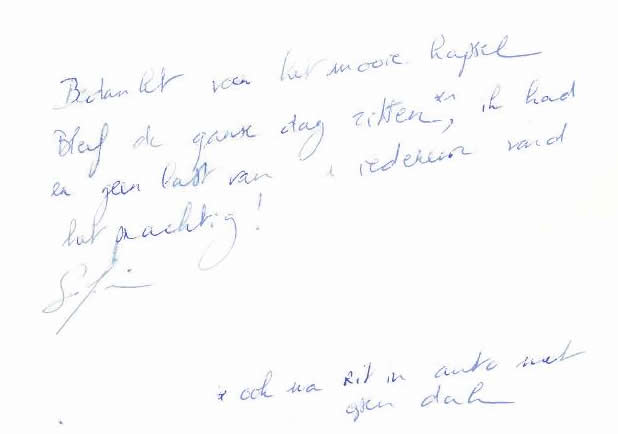 Bedankt voor het mooie kapsel
Bleef de ganse dag zitten*, ik had
er geen last van iedereen vond
het prachtig!
* ook na rit in auto met
geen dak